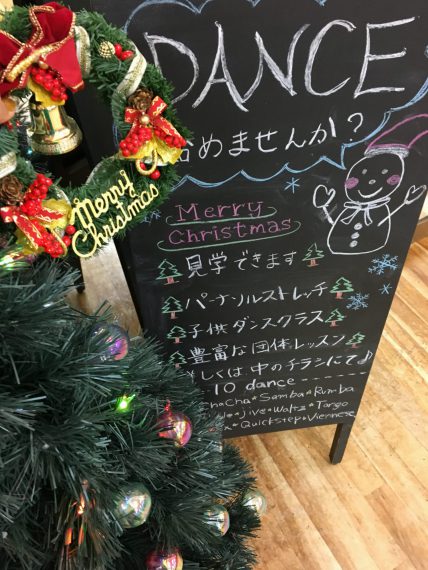 DANCE
始めませんか？
Merry
Christmas
Merry
Christmas
見学できます
パーソナルストレッチ
子供ダンスクラス
豊富な団体レッスン
しくは 中のチラシにて♪
10 dance
Cha★Samba★Rumba
★jive★Waltz★Tango
★Quickstep★Viennese